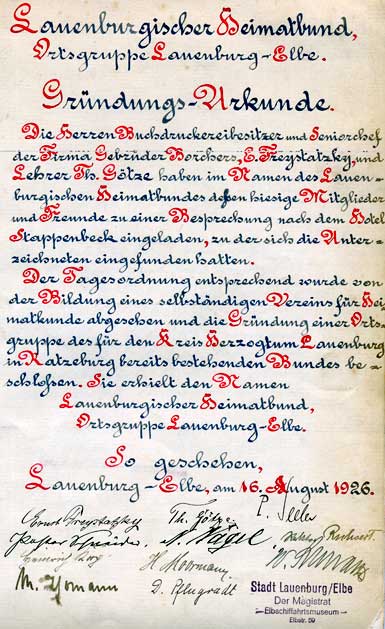 Lauenburgischer Heimatbund,
Ortsgruppe Lauenburg-Elbe.
Gründungs-Urkunde.
Die Herren Buchdruckereibesitzer und Seniorchef
der Firma Gebrüder Borchers, E. Freystatzky, und
Lehrer Th. Götze haben im Namen des Lauen-
burgischen Heimatbundes deßen hiesige Mitglieder
und Freunde zu einer Besprechung nach dem Hotel
Stappenbeck eingeladen, zu der sich die Unter-
zeichneten eingefunden hatten.
Der Tagesordnung entsprechend wurde von
der Bildung eines selbständigen Vereins für Hei-
matkunde abgesehen und die Gründung einer Orts-
gruppe des für den Kreis Herzogtum Lauenburg
in Ratzeburg bereits bestehenden Bundes be-
schloßen. Sie erhielt den Namen
Lauenburgischer Heimatbund,
Ortsgruppe Lauenburg-Elbe.
So geschehen,
Lauenburg-Elbe, am 16. August 1926.
Ernst Freystatzky Th. Götze
Pastor Nagel
H. Moormann
D. Pflugradt
Stadt Lauenburg/Elbe
Der Magistrat
Elbschiffahrtsmuseum
Elbstr. 59